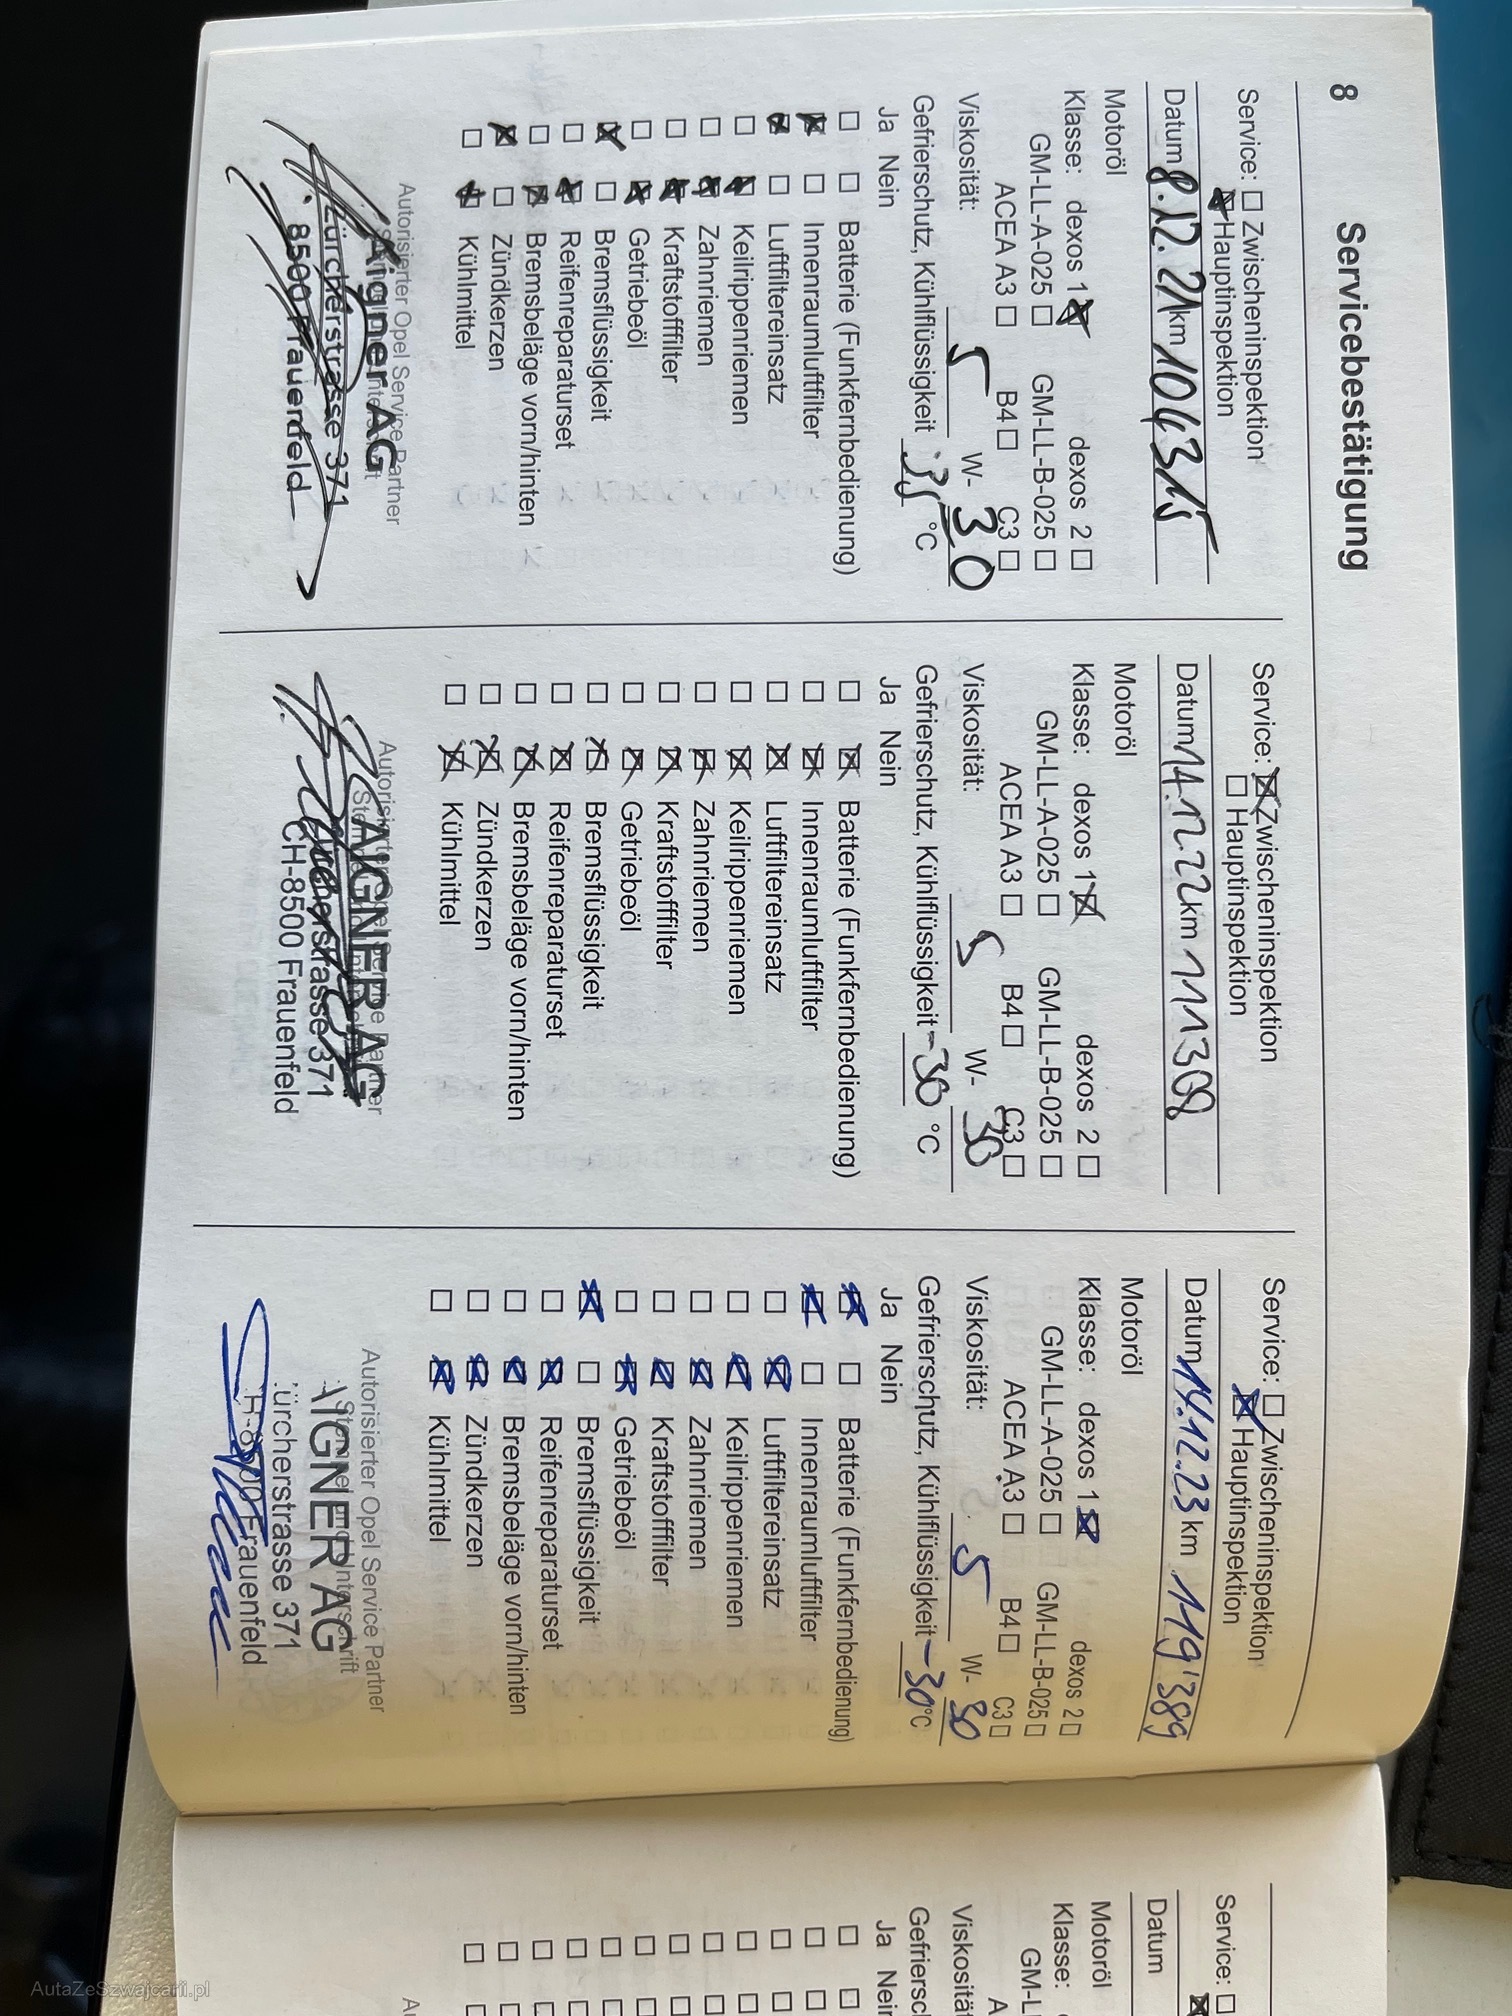 8
Servicebestätigung
Service: Zwischeninspektion
Hauptinspektion
Datum 8.12.21 km 104315
Motoröl
Klasse: dexos 1 dexos 2
GM-LL-A-025 GM-LL-B-025
ACEA A3 B4 C3
Viskosität: 5 W- 30
Gefrierschutz, Kühlflüssigkeit -35 °C
Ja Nein
Batterie (Funkfernbedienung)
Innenraumluftfilter
Luftfiltereinsatz
Keilrippenriemen
Zahnriemen
Kraftstofffilter
Getriebeöl
Bremsflüssigkeit
Reifenreparaturset
Bremsbeläge vorn/hinten
Zündkerzen
Kühlmittel
Autorisierter Opel Service Partner
Aigner AG
Zürcherstrasse 371
8500 Frauenfeld
Service: Zwischeninspektion
Hauptinspektion
Datum 14.12.22 km 111308
Motoröl
Klasse: dexos 1 dexos 2
GM-LL-A-025 GM-LL-B-025
ACEA A3 B4 C3
Viskosität: 5 W- 30
Gefrierschutz, Kühlflüssigkeit -30 °C
Ja Nein
Batterie (Funkfernbedienung)
Innenraumluftfilter
Luftfiltereinsatz
Keilrippenriemen
Zahnriemen
Kraftstofffilter
Getriebeöl
Bremsflüssigkeit
Reifenreparaturset
Bremsbeläge vorn/hinten
Zündkerzen
Kühlmittel
AIGNER AG
Zürcherstrasse 371
CH-8500 Frauenfeld
Service: Zwischeninspektion
Hauptinspektion
Datum 14.12.23 km 119'389
Motoröl
Klasse: dexos 1 dexos 2
GM-LL-A-025 GM-LL-B-025
ACEA A3 B4 C3
Viskosität: 5 W- 30
Gefrierschutz, Kühlflüssigkeit -30 °C
Ja Nein
Batterie (Funkfernbedienung)
Innenraumluftfilter
Luftfiltereinsatz
Keilrippenriemen
Zahnriemen
Kraftstofffilter
Getriebeöl
Bremsflüssigkeit
Reifenreparaturset
Bremsbeläge vorn/hinten
Zündkerzen
Kühlmittel
Autorisierter Opel Service Partner
Stempel und Unterschrift
AIGNER AG
ürcherstrasse 371
H-8500 Frauenfeld
Service:
Datum
Motoröl
Klasse:
GM-L
A
Viskosität
Gefriersc
Ja Nein
Au
AutaZeSzwajcarii.pl